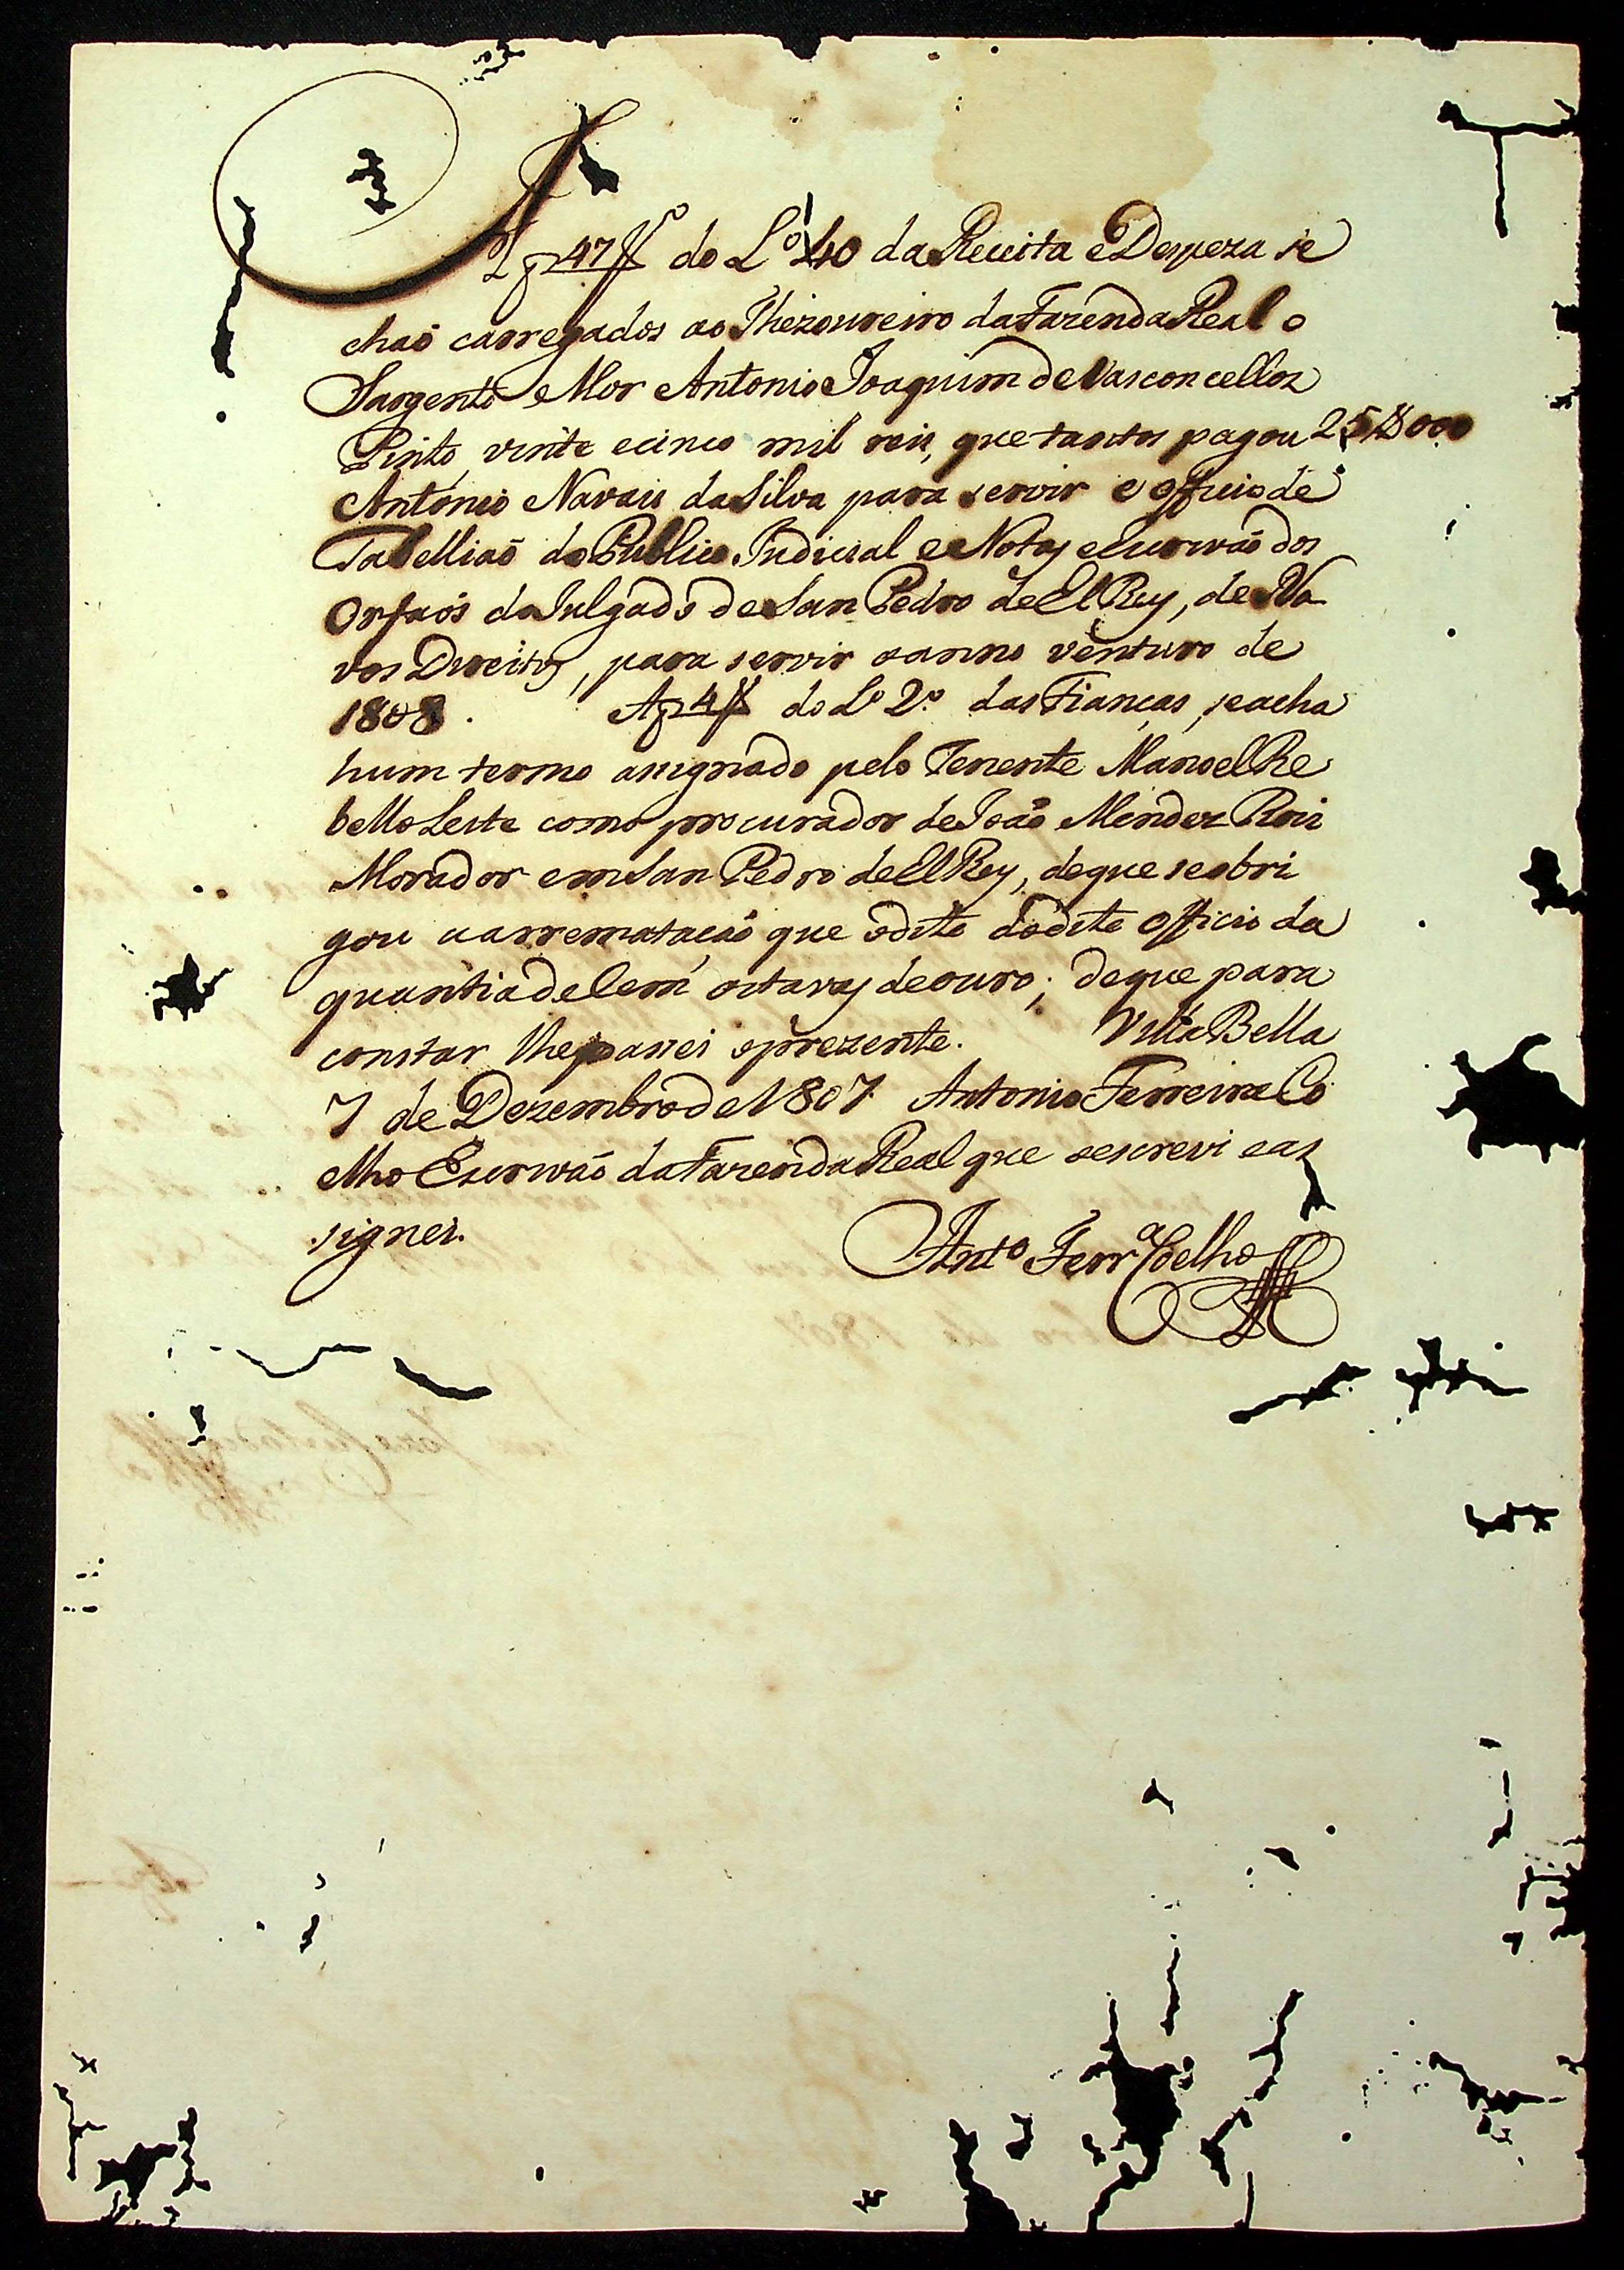 A f 47 do L.º 140 da Receita e Despeza se
chaõ carregados ao Thezoureiro da Fazenda Real o
Sargento Mor Antonio Joaquim de Vasconcellos
Pinto, vinte e cinco mil reis, que tantos pagou 25$000
Antonio Navais da Silva para servir o officio de
Tabelliaõ do Publico Judicial e Notas e Escrivaõ dos
Orfaõs do Julgado de San Pedro de El Rey, de No
vos Direitos, para servir o anno venturo de
1808. A f 4 do L.º 2.º das Fianças, se acha
hum termo assignado pelo Tenente Manoel Re
bello Leite como procurador de João Mendez Roiz
Morador em San Pedro de El Rey, de que se obri
gou a arremataçaõ que o dito do dito Officio da
quantia de Cem octavas de ouro; de que para
constar lhe passei o prezente. Villa Bella
7 de Dezembro de 1807 Antonio Ferreira Co
elho Escrivaõ da Fazenda Real que o escrevi e as
signei.
Ant.º Ferr.ª Coelho